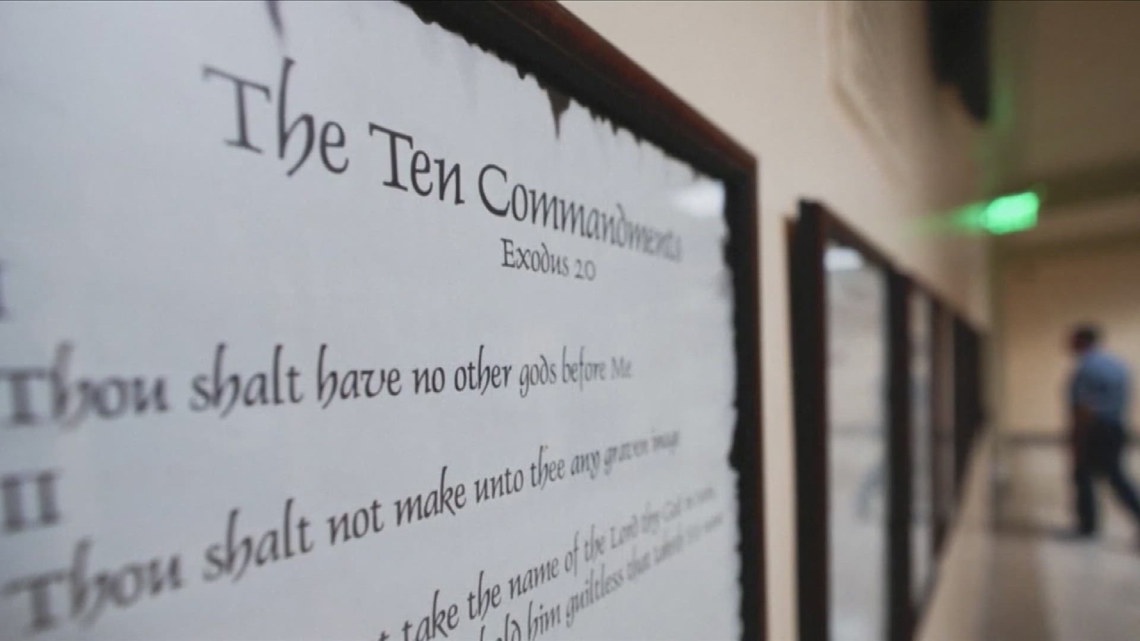 The Ten Commandments
Exodus 20
I
Thou shalt have no other gods before Me
II
Thou shalt not make unto thee any graven image
take the name of the Lord thy God in vain
hold him guiltless that taketh